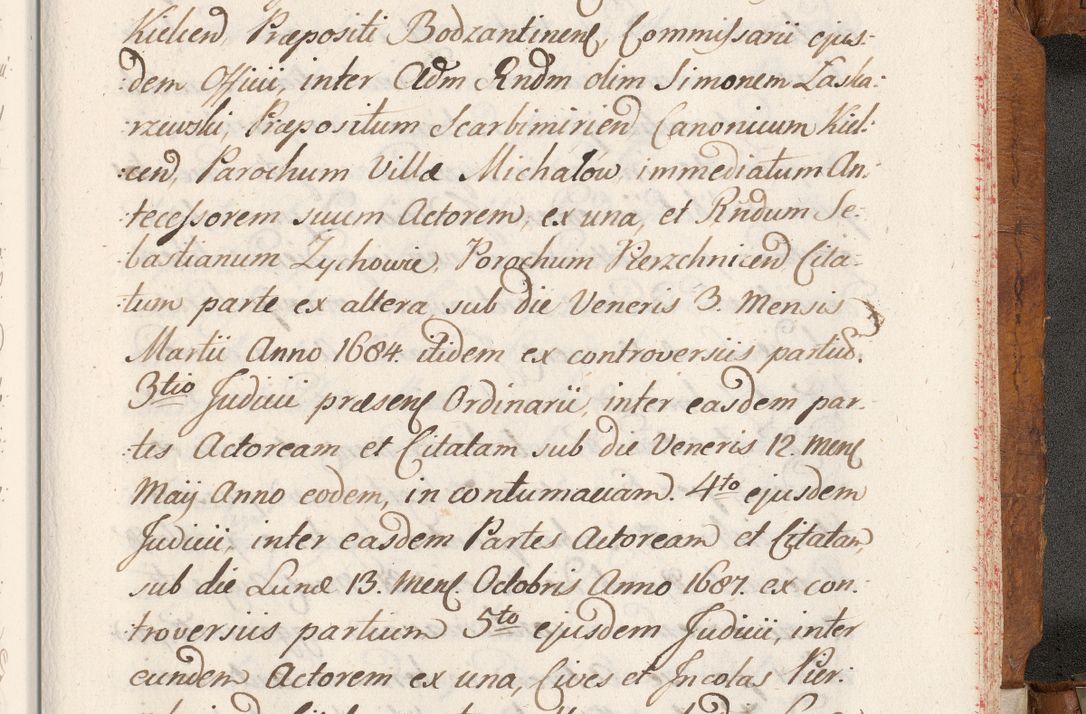 Kielcen, Præpositi Bodzantinens, Commissarii ejus-
dem Officii, inter Adm Rndm olim Simonem Laska-
rzewski, Præpositum Scarbimirien, Canonicum Kiel-
cen, Parochum Villæ Michałow, immediatum An-
tecessorem suum Actorem, ex una, et Rndum Se-
bastianum Zychowic, Parochum Pierzchnicen Cita-
tum parte ex altera, sub die Veneris 3. Mensis
Martii Anno 1684. itidem ex controversiis partium.
3tio Judicii præsens Ordinarii, inter easdem par-
tes Actoream et Citatam sub die Veneris 12. Mens
Maij Anno eodem, in contumaciam. 4to ejusdem
Judicii, inter easdem Partes Actoream et Citatam,
sub die Lunæ 13. Mens. Octobris Anno 1687. ex con-
troversiis partium 5to ejusdem Judicii, inter
eundem Actorem ex una, Cives et Incolas Pier-